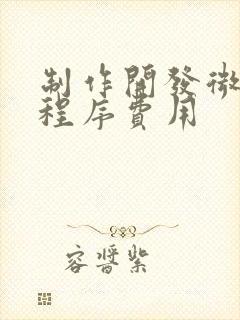 制作開發微
程序費用
容晉紫